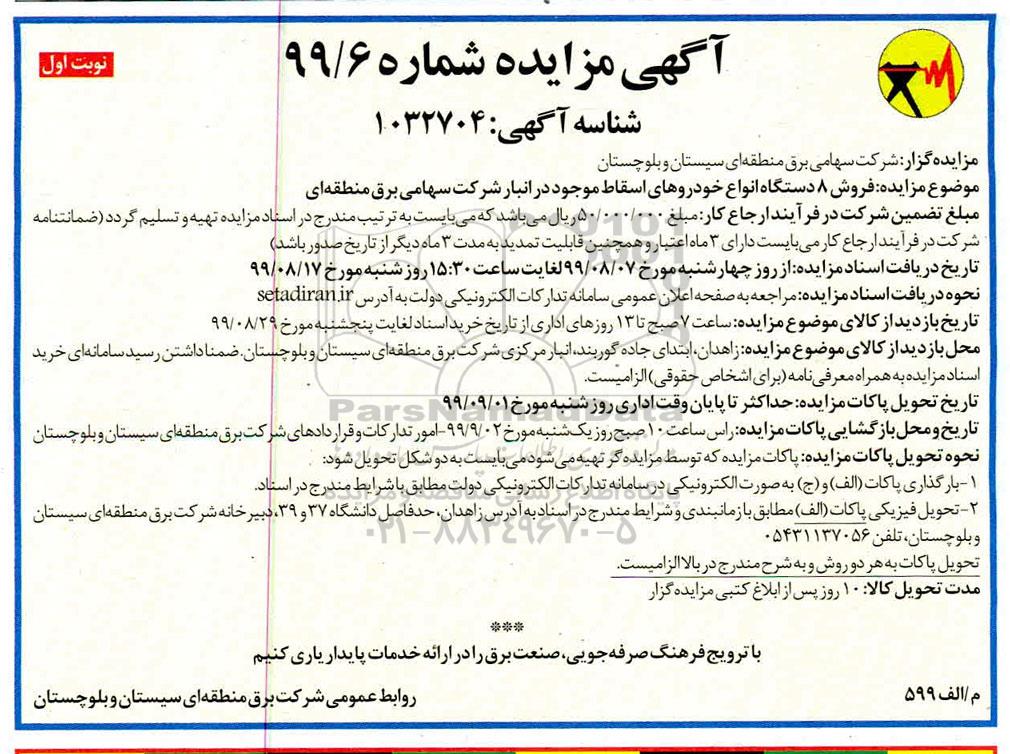 آگهی مزایده شماره ۹۹/۶
نوبت اول
شناسه آگهی: ۱۰۳۲۷۰۴
مزایده‌گزار: شرکت سهامی برق منطقه‌ای سیستان و بلوچستان
موضوع مزایده: فروش ۸ دستگاه انواع خودروهای اسقاط موجود در انبار شرکت سهامی برق منطقه‌ای
مبلغ تضمین شرکت در فرآیند ارجاع کار: مبلغ ۵۰/۰۰۰/۰۰۰ ریال می‌باشد که می‌بایست به ترتیب مندرج در اسناد مزایده تهیه و تسلیم گردد (ضمانتنامه
شرکت در فرآیند ارجاع کار می‌بایست دارای ۳ ماه اعتبار و همچنین قابلیت تمدید به مدت ۳ ماه دیگر از تاریخ صدور باشد)
تاریخ دریافت اسناد مزایده: از روز چهارشنبه مورخ ۹۹/۰۸/۰۷ لغایت ساعت ۱۵:۳۰ روز شنبه مورخ ۹۹/۰۸/۱۷
نحوه دریافت اسناد مزایده: مراجعه به صفحه اعلان عمومی سامانه تدارکات الکترونیکی دولت به آدرس setadiran.ir
تاریخ بازدید از کالای موضوع مزایده: ساعت ۷ صبح تا ۱۳ روزهای اداری از تاریخ خرید اسناد لغایت پنجشنبه مورخ ۹۹/۰۸/۲۹
محل بازدید از کالای موضوع مزایده: زاهدان، ابتدای جاده گوربند، انبار مرکزی شرکت برق منطقه‌ای سیستان و بلوچستان. ضمنا داشتن رسید سامانه‌ای خرید
اسناد مزایده به همراه معرفی‌نامه (برای اشخاص حقوقی) الزامیست.
تاریخ تحویل پاکات مزایده: حداکثر تا پایان وقت اداری روز شنبه مورخ ۹۹/۰۹/۰۱
تاریخ و محل بازگشایی پاکات مزایده: راس ساعت ۱۰ صبح روز یک‌شنبه مورخ ۹۹/۹/۰۲-امور تدارکات و قراردادهای شرکت برق منطقه‌ای سیستان و بلوچستان
نحوه تحویل پاکات مزایده: پاکات مزایده که توسط مزایده‌گر تهیه می‌شود می‌بایست به دو شکل تحویل شود:
۱-بارگذاری پاکات (الف) و (ج) به صورت الکترونیکی در سامانه تدارکات الکترونیکی دولت مطابق با شرایط مندرج در اسناد.
۲-تحویل فیزیکی پاکات (الف) مطابق با زمانبندی و شرایط مندرج در اسناد به آدرس زاهدان، حدفاصل دانشگاه ۳۷ و ۳۹، دبیرخانه شرکت برق منطقه‌ای سیستان
و بلوچستان، تلفن ۰۵۴۳۱۱۳۷۰۵۶
تحویل پاکات به هر دو روش و به شرح مندرج در بالا الزامیست.
مدت تحویل کالا: ۱۰ روز پس از ابلاغ کتبی مزایده‌گزار
***
با ترویج فرهنگ صرفه‌جویی، صنعت برق را در ارائه خدمات پایدار یاری کنیم
م/الف ۵۹۹
روابط عمومی شرکت برق منطقه‌ای سیستان و بلوچستان
ParsNamadData
۰۲۱-۸۸۳۴۹۶۷۰-۵